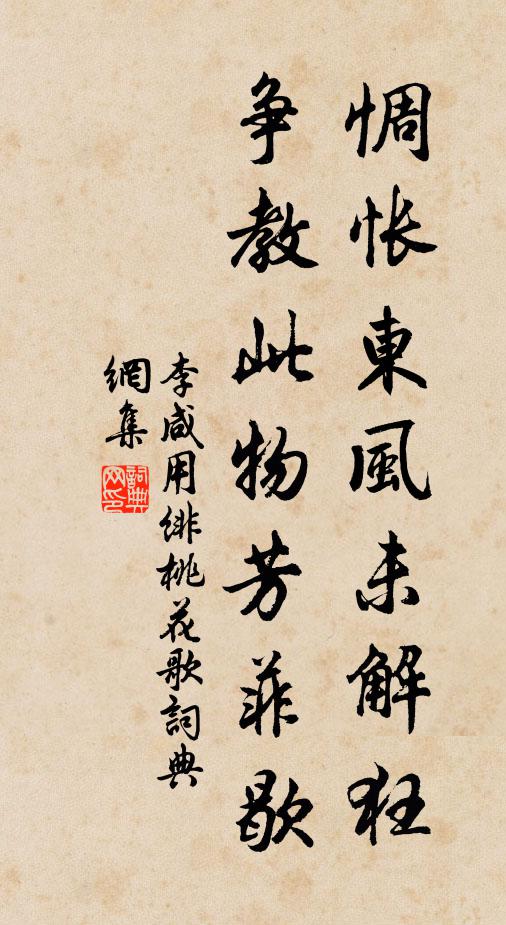 惆怅東風未解狂
争教此物芳菲歇
李咸用緋桃花歌詞典
網集
詞典網印